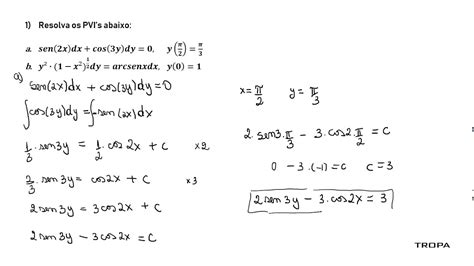 1) Resolva os PVI's abaixo:
a. sen(2x)dx + cos(3y)dy = 0, y(π/2) = π/3
b. y² · (1 − x²)^(1/2) dy = arcsenxdx, y(0) = 1
a) sen(2x)dx + cos(3y)dy = 0
∫cos(3y)dy = ∫-sen(2x)dx
1/3 · sen3y = 1/2 · cos2x + C x2
2/3 · sen3y = cos2x + C x3
2 sen3y = 3cos2x + C
2 sen3y − 3cos2x = C
x = π/2 y = π/3
2 · sen3 · π/3 − 3 · cos2 · π/2 = C
0 − 3 · (-1) = C C = 3
2sen3y − 3 · cos2x = 3
TROPA